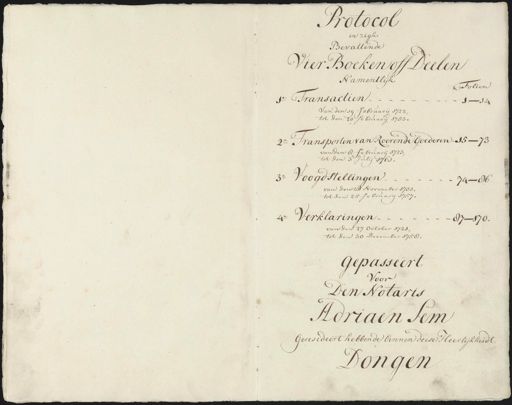 Protocol
in zigh
Bevattende
Vier Boeken off Deelen
Namentlijk
Folien
1º Transactien 1—14
Van den 19 February 1722
tot den 20 February
2º Transporten van Roerende Goederen 15—73
van den February
tot den 5 July
3º Voogdstellingen 74—86
van den November
tot den February 1757.
4º Verklaringen 87—170.
van den 27 October 1721
tot den 30 December 1758.
Gepasseert
Voor
Den Notaris
Adriaen Sem
Geresideert hebbende binnen deese Heerlijkheidt
Dongen